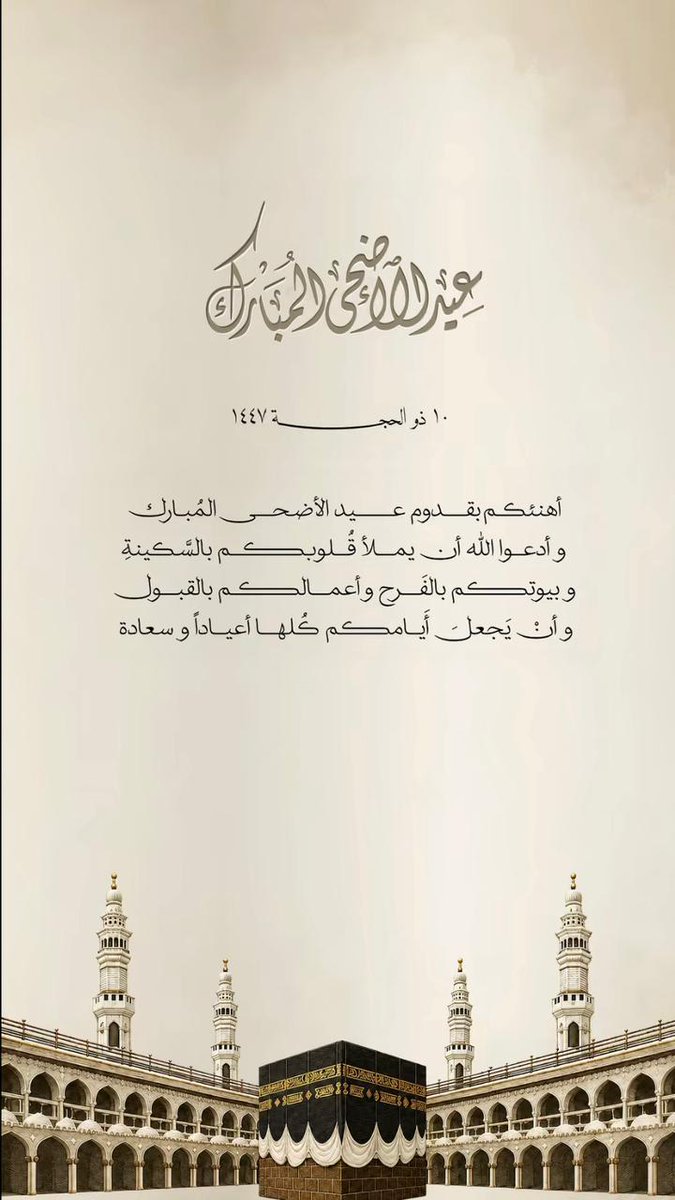 عِيد الأضحى المُبَارك
١٠ ذو الحجـــة ١٤٤٧
أهنئكم بقدوم عيد الأضحى المُبارك
و أدعوا الله أن يملأ قُلوبكم بالسَّكينةِ
و بيوتكم بالفَرح و أعمالكم بالقبول
و أنْ يَجعلَ أَيامكم كُلها أعياداً و سعادة